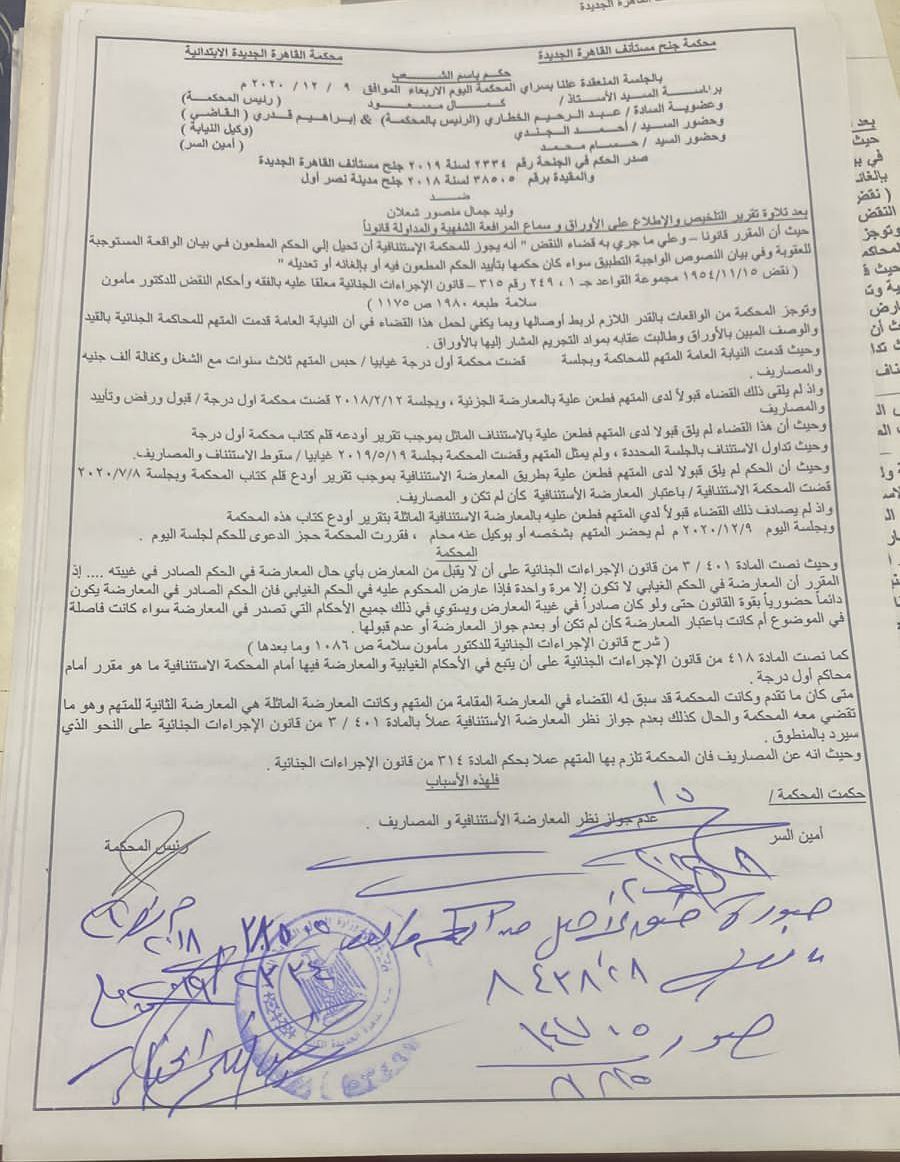 محكمة جنح مستأنف القاهرة الجديدة
محكمة القاهرة الجديدة الابتدائية
حكم باسم الشعب
بالجلسة المنعقدة علنا بسراي المحكمة اليوم الاربعاء الموافق ٩ / ١٢ / ٢٠٢٠ م
برئاسة السيد الأستاذ / كمال مسعود (رئيس المحكمة)
وعضوية السادة / عبد الرحيم الخطاري (الرئيس بالمحكمة) & إبراهيم قدري (القاضي)
وحضور السيد / أحمد الجندي (وكيل النيابة)
وحضور السيد / حسام محمد (أمين السر)
صدر الحكم في الجنحة رقم ٢٣٣٤ لسنة ٢٠١٩ جنح مستأنف القاهرة الجديدة
والمقيدة برقم ٣٨٥٠٥ لسنة ٢٠١٨ جنح مدينة نصر أول
ضد
وليد جمال منصور شعلان
بعد تلاوة تقرير التلخيص والإطلاع على الأوراق و سماع المرافعة الشفهية والمداولة قانوناً
حيث أن المقرر قانونا – وعلي ما جري به قضاء النقض " أنه يجوز للمحكمة الإستئنافية أن تحيل إلي الحكم المطعون في بيان الواقعة المستوجبة
للعقوبة وفي بيان النصوص الواجبة التطبيق سواء كان حكمها بتأييد الحكم المطعون فيه أو بإلغائه أو تعديله "
( نقض ١٩٥٤/١١/١٥ مجموعة القواعد جـ ١ ، ٢٤٩ رقم ٣١٥ – قانون الإجراءات الجنائية معلقا عليه بالفقه وأحكام النقض للدكتور مأمون
سلامة طبعه ١٩٨٠ ص ١١٧٥ )
وتوجز المحكمة من الواقعات بالقدر اللازم لربط أوصالها وبما يكفي لحمل هذا القضاء في أن النيابة العامة قدمت المتهم للمحاكمة الجنائية بالقيد
والوصف المبين بالأوراق وطالبت عقابه بمواد التجريم المشار إليها بالأوراق .
وحيث قدمت النيابة العامة المتهم للمحاكمة وبجلسة قضت محكمة أول درجة غيابيا / حبس المتهم ثلاث سنوات مع الشغل وكفالة ألف جنيه
والمصاريف .
واذ لم يلقى ذلك القضاء قبولاً لدى المتهم فطعن علية بالمعارضة الجزئية ، وبجلسة ٢٠١٨/٢/١٢ قضت محكمة اول درجة / قبول ورفض وتأييد
والمصاريف
وحيث أن هذا القضاء لم يلق قبولا لدى المتهم فطعن علية بالاستئناف الماثل بموجب تقرير أودعه قلم كتاب محكمة أول درجة
وحيث تداول الاستئناف بالجلسة المحددة ، ولم يمثل المتهم وقضت المحكمة بجلسة ٢٠١٩/٥/١٩ غيابيا / سقوط الاستئناف والمصاريف.
وحيث أن الحكم لم يلق قبولا لدى المتهم فطعن علية بطريق المعارضة الاستئنافية بموجب تقرير أودع قلم كتاب المحكمة وبجلسة ٢٠٢٠/٧/٨
قضت المحكمة الاستئنافية / باعتبار المعارضة الأستئنافية كأن لم تكن و المصاريف.
واذ لم يصادف ذلك القضاء قبولاً لدي المتهم فطعن عليه بالمعارضة الاستئنافية الماثلة بتقرير أودع كتاب هذه المحكمة
وبجلسة اليوم ٢٠٢٠/١٢/٩ م لم يحضر المتهم بشخصه أو بوكيل عنه محام ، فقررت المحكمة حجز الدعوى للحكم لجلسة اليوم .
المحكمة
وحيث نصت المادة ٤٠١ / ٣ من قانون الإجراءات الجنائية على أن لا يقبل من المعارض بأي حال المعارضة في الحكم الصادر في غيبته .... إذ
المقرر أن المعارضة في الحكم الغيابي لا تكون إلا مرة واحدة فإذا عارض المحكوم عليه في الحكم الغيابي فان الحكم الصادر في المعارضة يكون
دائماً حضورياً بقوة القانون حتى ولو كان صادراً في غيبة المعارض ويستوي في ذلك جميع الأحكام التي تصدر في المعارضة سواء كانت فاصلة
في الموضوع أم كانت باعتبار المعارضة كأن لم تكن أو بعدم جواز المعارضة أو عدم قبولها .
( شرح قانون الإجراءات الجنائية للدكتور مأمون سلامة ص ١٠٨٦ وما بعدها )
كما نصت المادة ٤١٨ من قانون الإجراءات الجنائية على أن يتبع في الأحكام الغيابية والمعارضة فيها أمام المحكمة الاستئنافية ما هو مقرر أمام
محاكم أول درجة .
متى كان ما تقدم وكانت المحكمة قد سبق له القضاء في المعارضة المقامة من المتهم وكانت المعارضة الماثلة هي المعارضة الثانية للمتهم وهو ما
تقتضي معه المحكمة والحال كذلك بعدم جواز نظر المعارضة الأستئنافية عملاً بالمادة ٤٠١ / ٣ من قانون الإجراءات الجنائية على النحو الذي
سيرد بالمنطوق .
وحيث انه عن المصاريف فان المحكمة تلزم بها المتهم عملا بحكم المادة ٣١٤ من قانون الإجراءات الجنائية .
فلهذه الأسباب
حكمت المحكمة /
عدم جواز نظر المعارضة الأستئنافية و المصاريف .
أمين السر
رئيس المحكمة